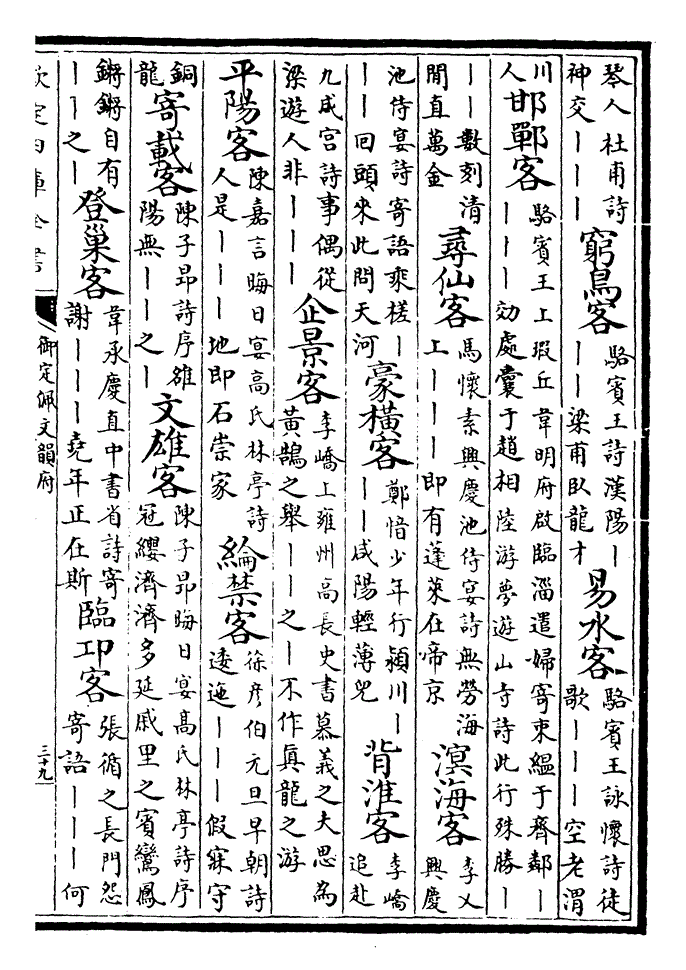 琴人杜甫詩神交｜｜｜窮鳥客駱賓王詩漢陽｜｜｜梁甫臥龍才易水客駱賓王詠懷詩徒歌｜｜｜空老渭
川人邯鄲客駱賓王上瑕丘韋明府啟臨淄遣婦寄束縕于齊鄰｜｜｜｜効處囊于趙相陸游夢遊山寺詩此行殊勝｜
｜｜數刻清閒直萬金尋仙客馬懷素興慶池侍宴詩無勞海上｜｜｜即有蓬萊在帝京溟海客李乂興慶
池侍宴詩寄語乘槎｜｜｜回頭來此問天河豪橫客鄭愔少年行潁川｜｜｜咸陽輕薄兒背淮客李嶠追赴
九成宮詩事偶從梁遊人非｜｜｜企景客李嶠上雍州高長史書慕義之夫思為黃鵠之舉｜｜之｜不作真龍之游
平陽客陳嘉言晦日宴高氏林亭詩人是｜｜｜地即石崇家綸禁客徐彥伯元旦早朝詩逶迤｜｜｜假寐守
銅龍寄載客陳子昂詩序雒陽無｜｜之｜文雄客陳子昂晦日宴高氏林亭詩序冠纓濟濟多延戚里之賓鸞鳳
鏘鏘自有｜｜之｜登巢客韋承慶直中書省詩寄謝｜｜｜堯年正在斯臨邛客張循之長門怨寄語｜｜｜何
欽定四庫全書
御定佩文韻府
三十九